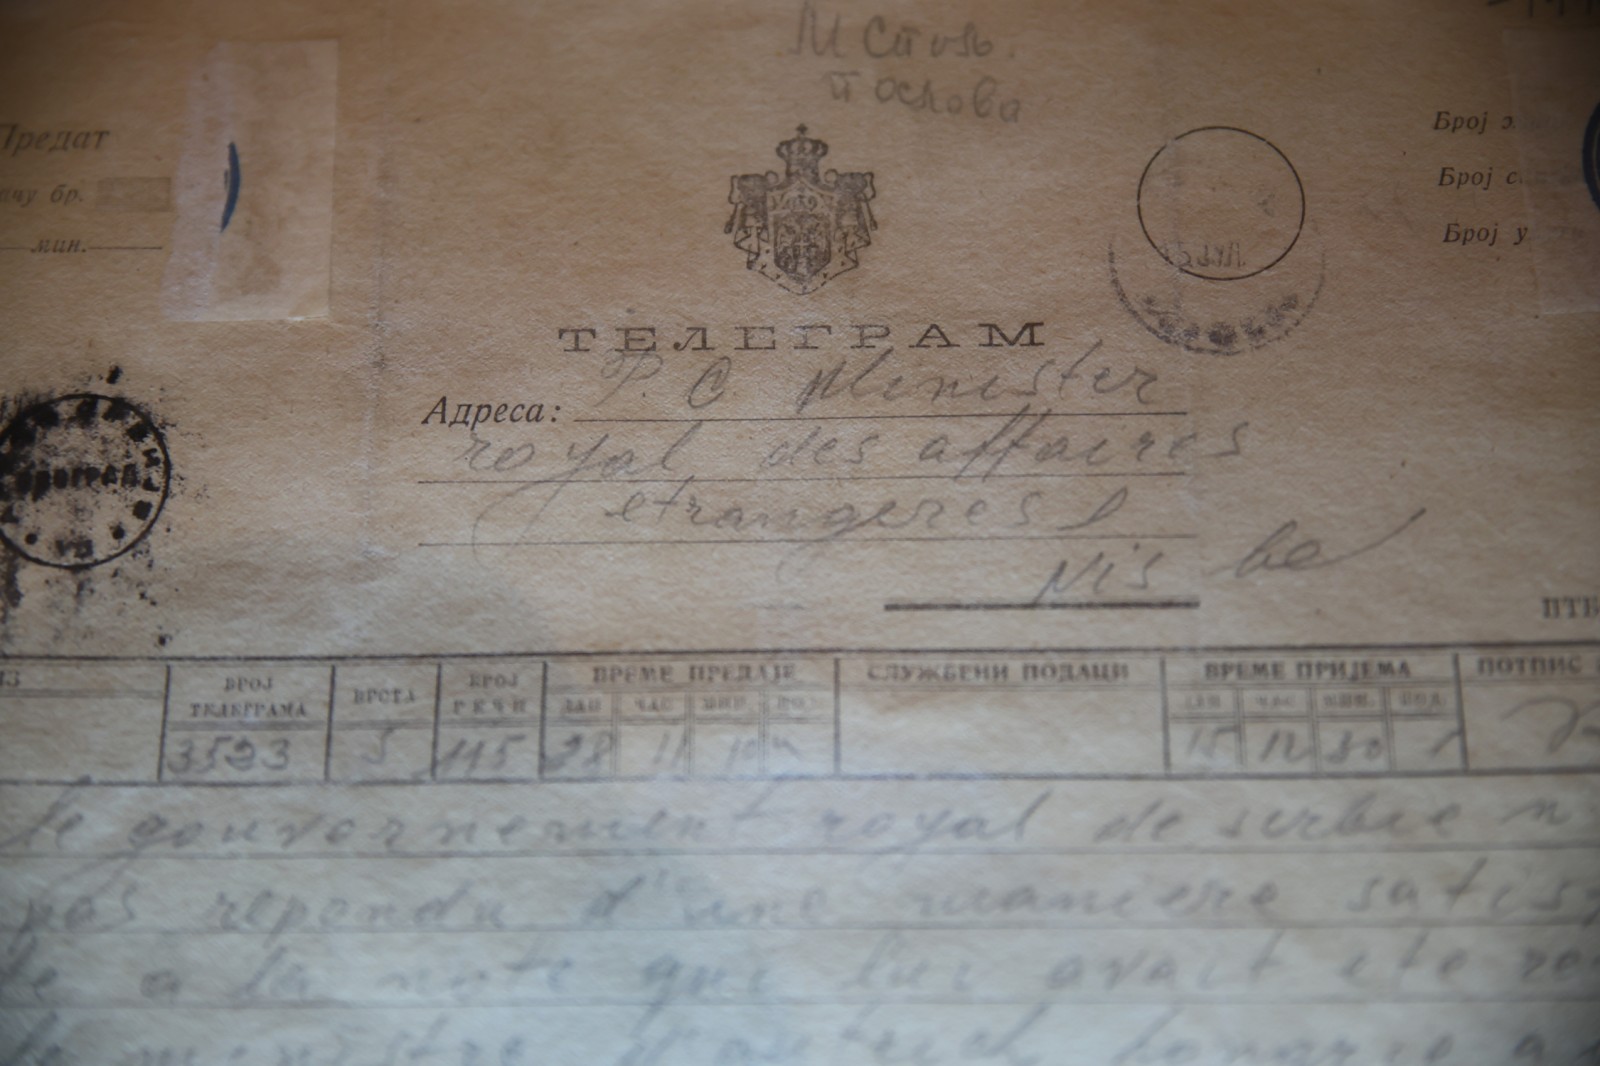 М Спољ.
послова
Предат
ачу бр.
мин.
Број
Број с
Број у
ТЕЛЕГРАМ
Адреса: P. C. Minister
royal des affaires
etrangeres
Nis
ПТБ
БРОЈ ТЕЛЕГРАМА ВРСТА БРОЈ РЕЧИ ВРЕМЕ ПРЕДАЈЕ СЛУЖБЕНИ ПОДАЦИ ВРЕМЕ ПРИЈЕМА ПОТПИС
ДАН ЧАС МИН. ПОД. ДАН ЧАС МИН. ПОД.
3523 5 115 28 11 10 15 12 30
le gouvernement royal de serbie n
pas repondu d'une maniere satis
a la note qui lui avait ete
le ministre d'autrich hongrie a